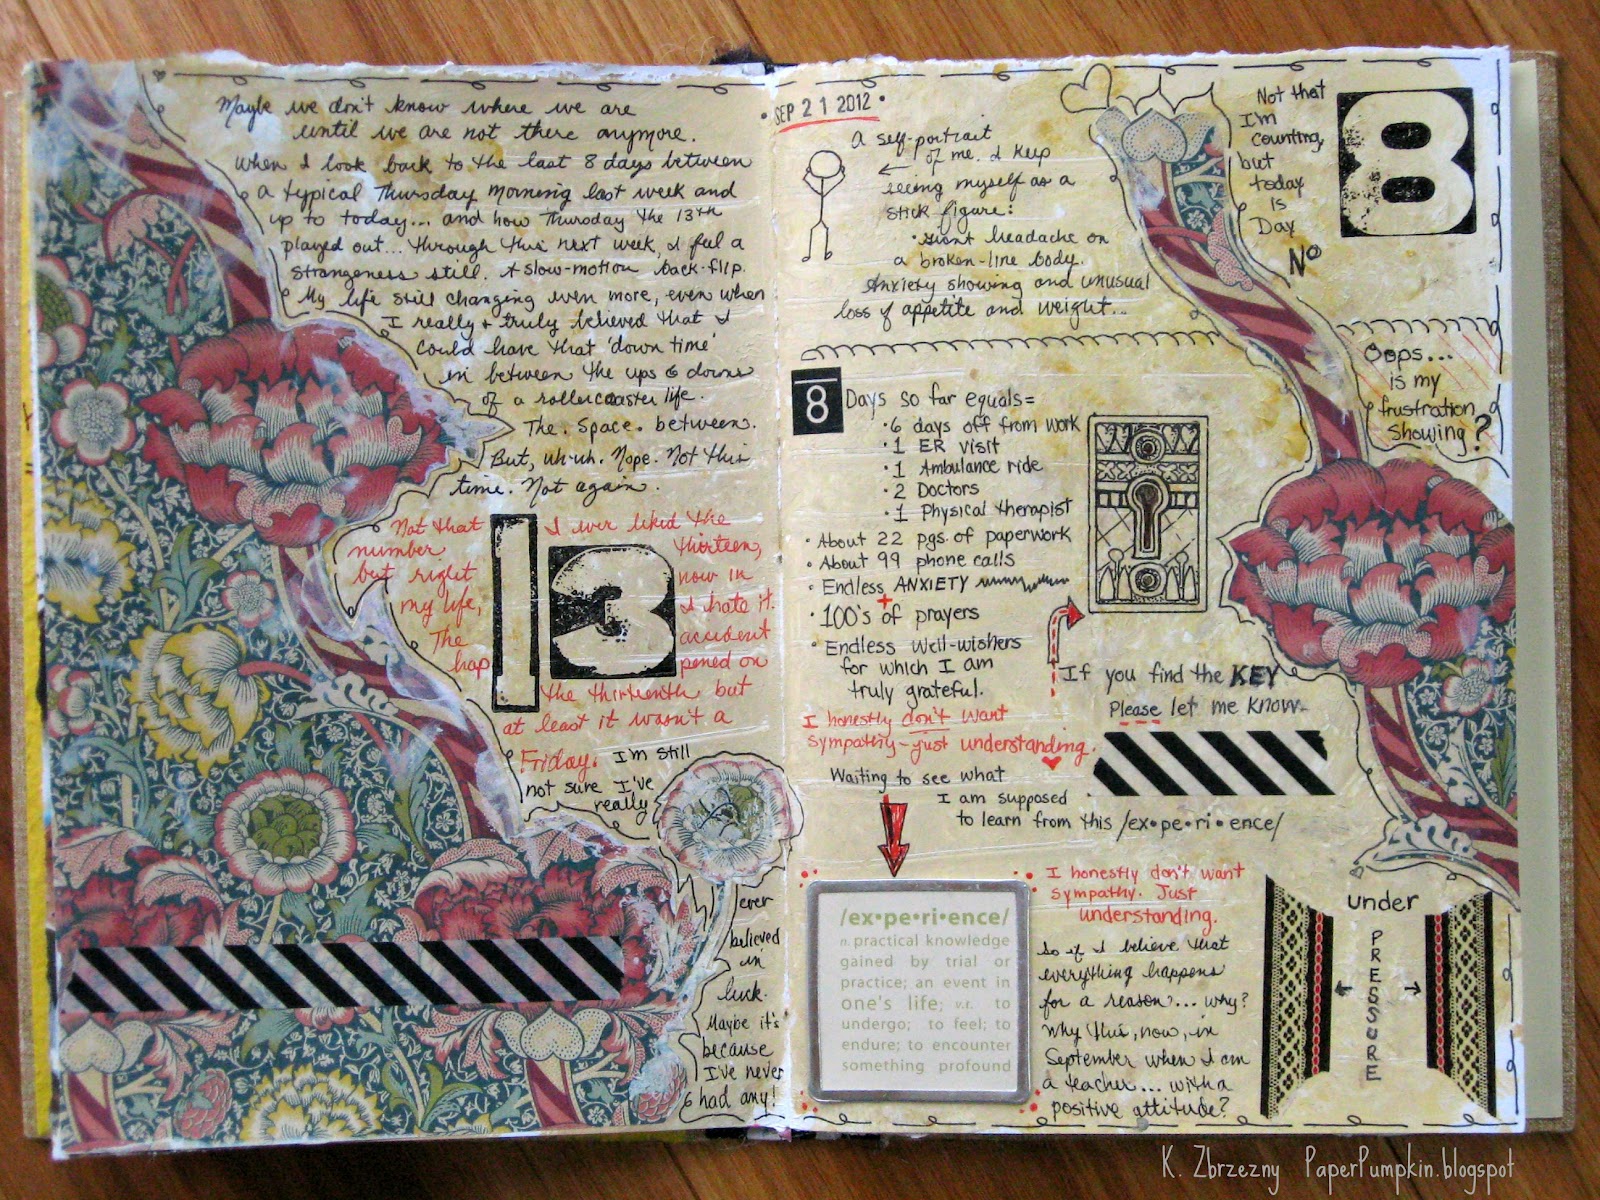 Maybe we don't know where we are
until we are not there anymore.
When I look back to the last 8 days between
a typical Thursday morning last week and
up to today... and how Thursday the 13th
played out... through this next week, I feel a
strangeness still. A slow-motion back-flip.
My life still changing even more, even when
I really + truly believed that I
could have that 'down time'
in between the ups & downs
of a rollercoaster life.
The. Space. between.
But, uh-uh. Nope. Not this
time. Not again.
Not that I ever liked the
number thirteen,
but right now in
my life, I hate it.
The accident
hap 13 pened on
the thirteenth but
at least it wasn't a
Friday. I'm still
not sure I've
really
ever
believed
in
luck.
Maybe it's
because
I've never
had any!
SEP 21 2012
A self-portrait
of me. I keep
seeing myself as a
stick figure:
• giant headache on
a broken-line body.
Anxiety showing and unusual
loss of appetite and weight...
Not that
I'm
counting,
but
today
is
Day
No 8
Oops...
is my
frustration
showing?
8 Days so far equals=
• 6 days off from work
• 1 ER visit
• 1 Ambulance ride
• 2 Doctors
• 1 Physical therapist
• About 22 pgs. of paperwork
• About 99 phone calls
• Endless ANXIETY
+
• 100's of prayers
• Endless well-wishers
for which I am
truly grateful.
I honestly don't want
sympathy-just understanding.
If you find the KEY
Please let me know.
Waiting to see what
I am supposed
to learn from this /ex•pe•ri•ence/
/ex•pe•ri•ence/
n. practical knowledge
gained by trial or
practice; an event in
one's life; v.t. to
undergo; to feel; to
endure; to encounter
something profound
I honestly don't want
sympathy. Just
understanding.
So if I believe that
everything happens
for a reason... why?
Why this, now, in
September when I am
a teacher... with a
positive attitude?
under
PRESSURE
K. Zbrzezny PaperPumpkin.blogspot